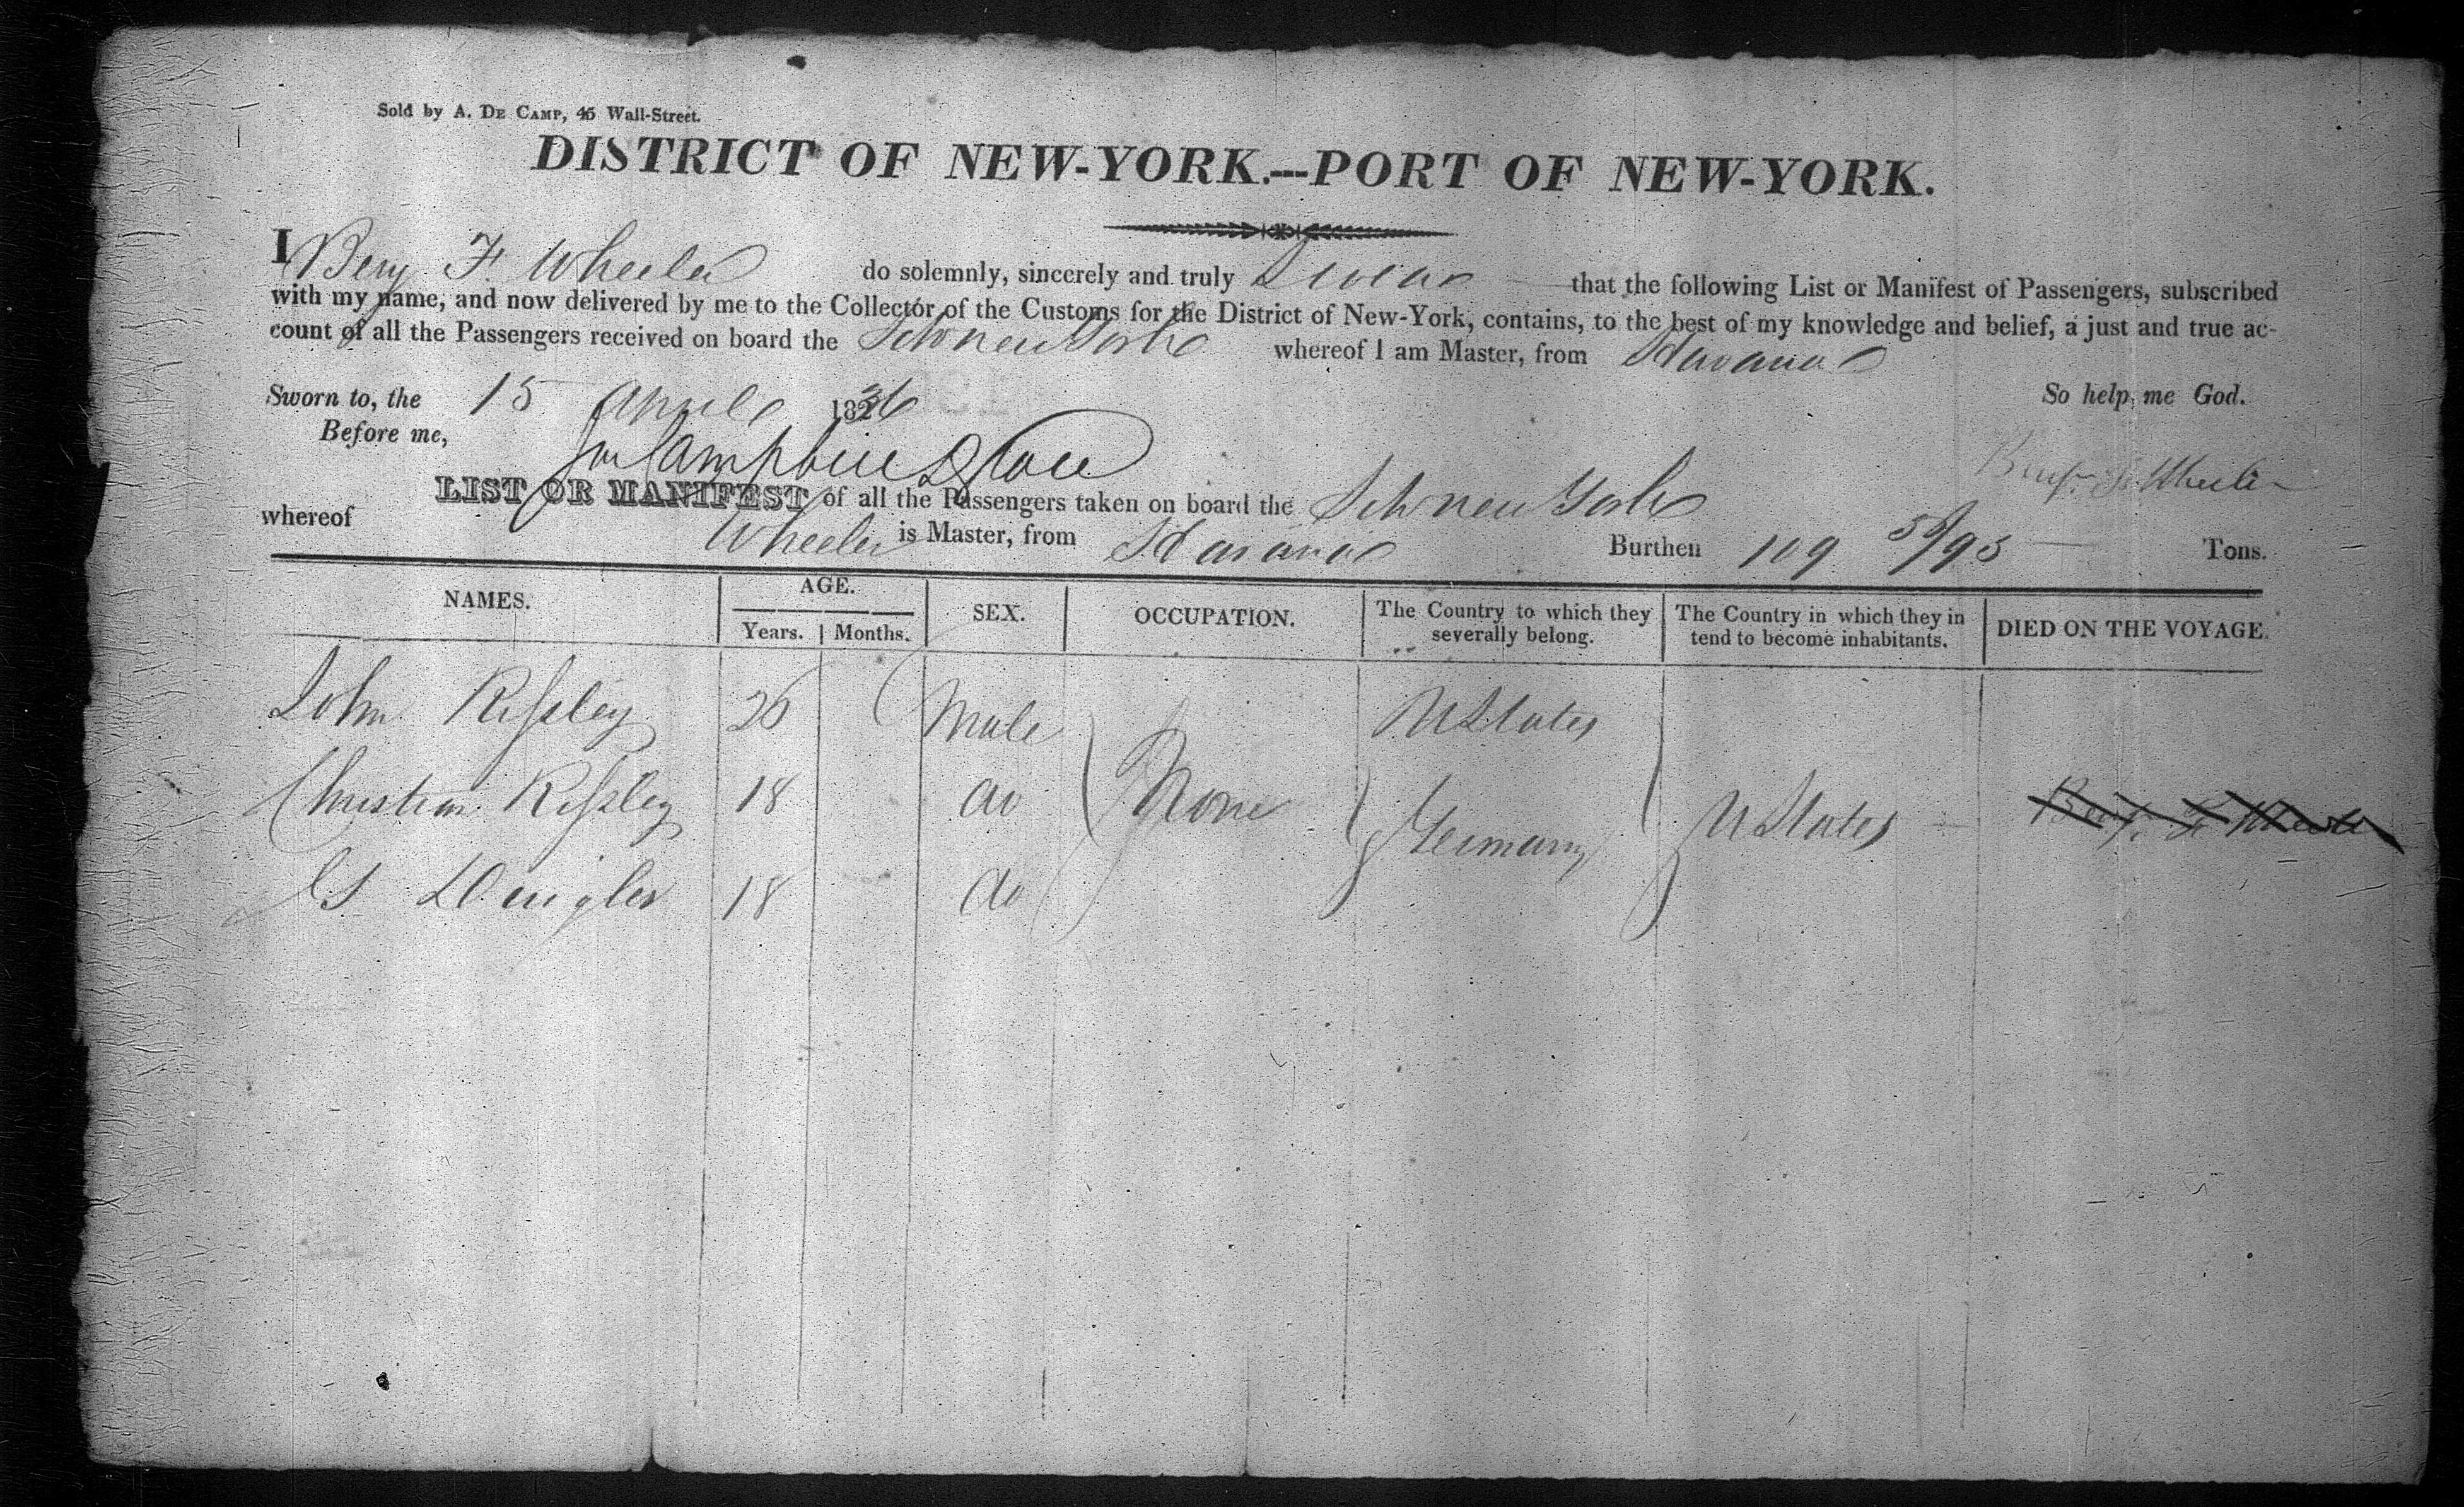 Sold by A. De Camp, 45 Wall-Street.
DISTRICT OF NEW-YORK.---PORT OF NEW-YORK.
I Benj F. Wheeler do solemnly, sincerely and truly Swear that the following List or Manifest of Passengers, subscribed
with my name, and now delivered by me to the Collector of the Customs for the District of New-York, contains, to the best of my knowledge and belief, a just and true ac-
count of all the Passengers received on board the Sch New York whereof I am Master, from Havana
Sworn to, the 15 April 1836 So help me God.
Before me,
Benj. F. Wheeler
LIST OR MANIFEST of all the Passengers taken on board the Sch New York
whereof Wheeler is Master, from Havana Burthen 109 50/95 Tons.
NAMES. AGE. SEX. OCCUPATION. The Country to which they severally belong. The Country in which they in tend to become inhabitants. DIED ON THE VOYAGE.
Years. Months.
John 26 Male U States
Christian 18 do None Germany U States Benj. F. Wheeler
18 do